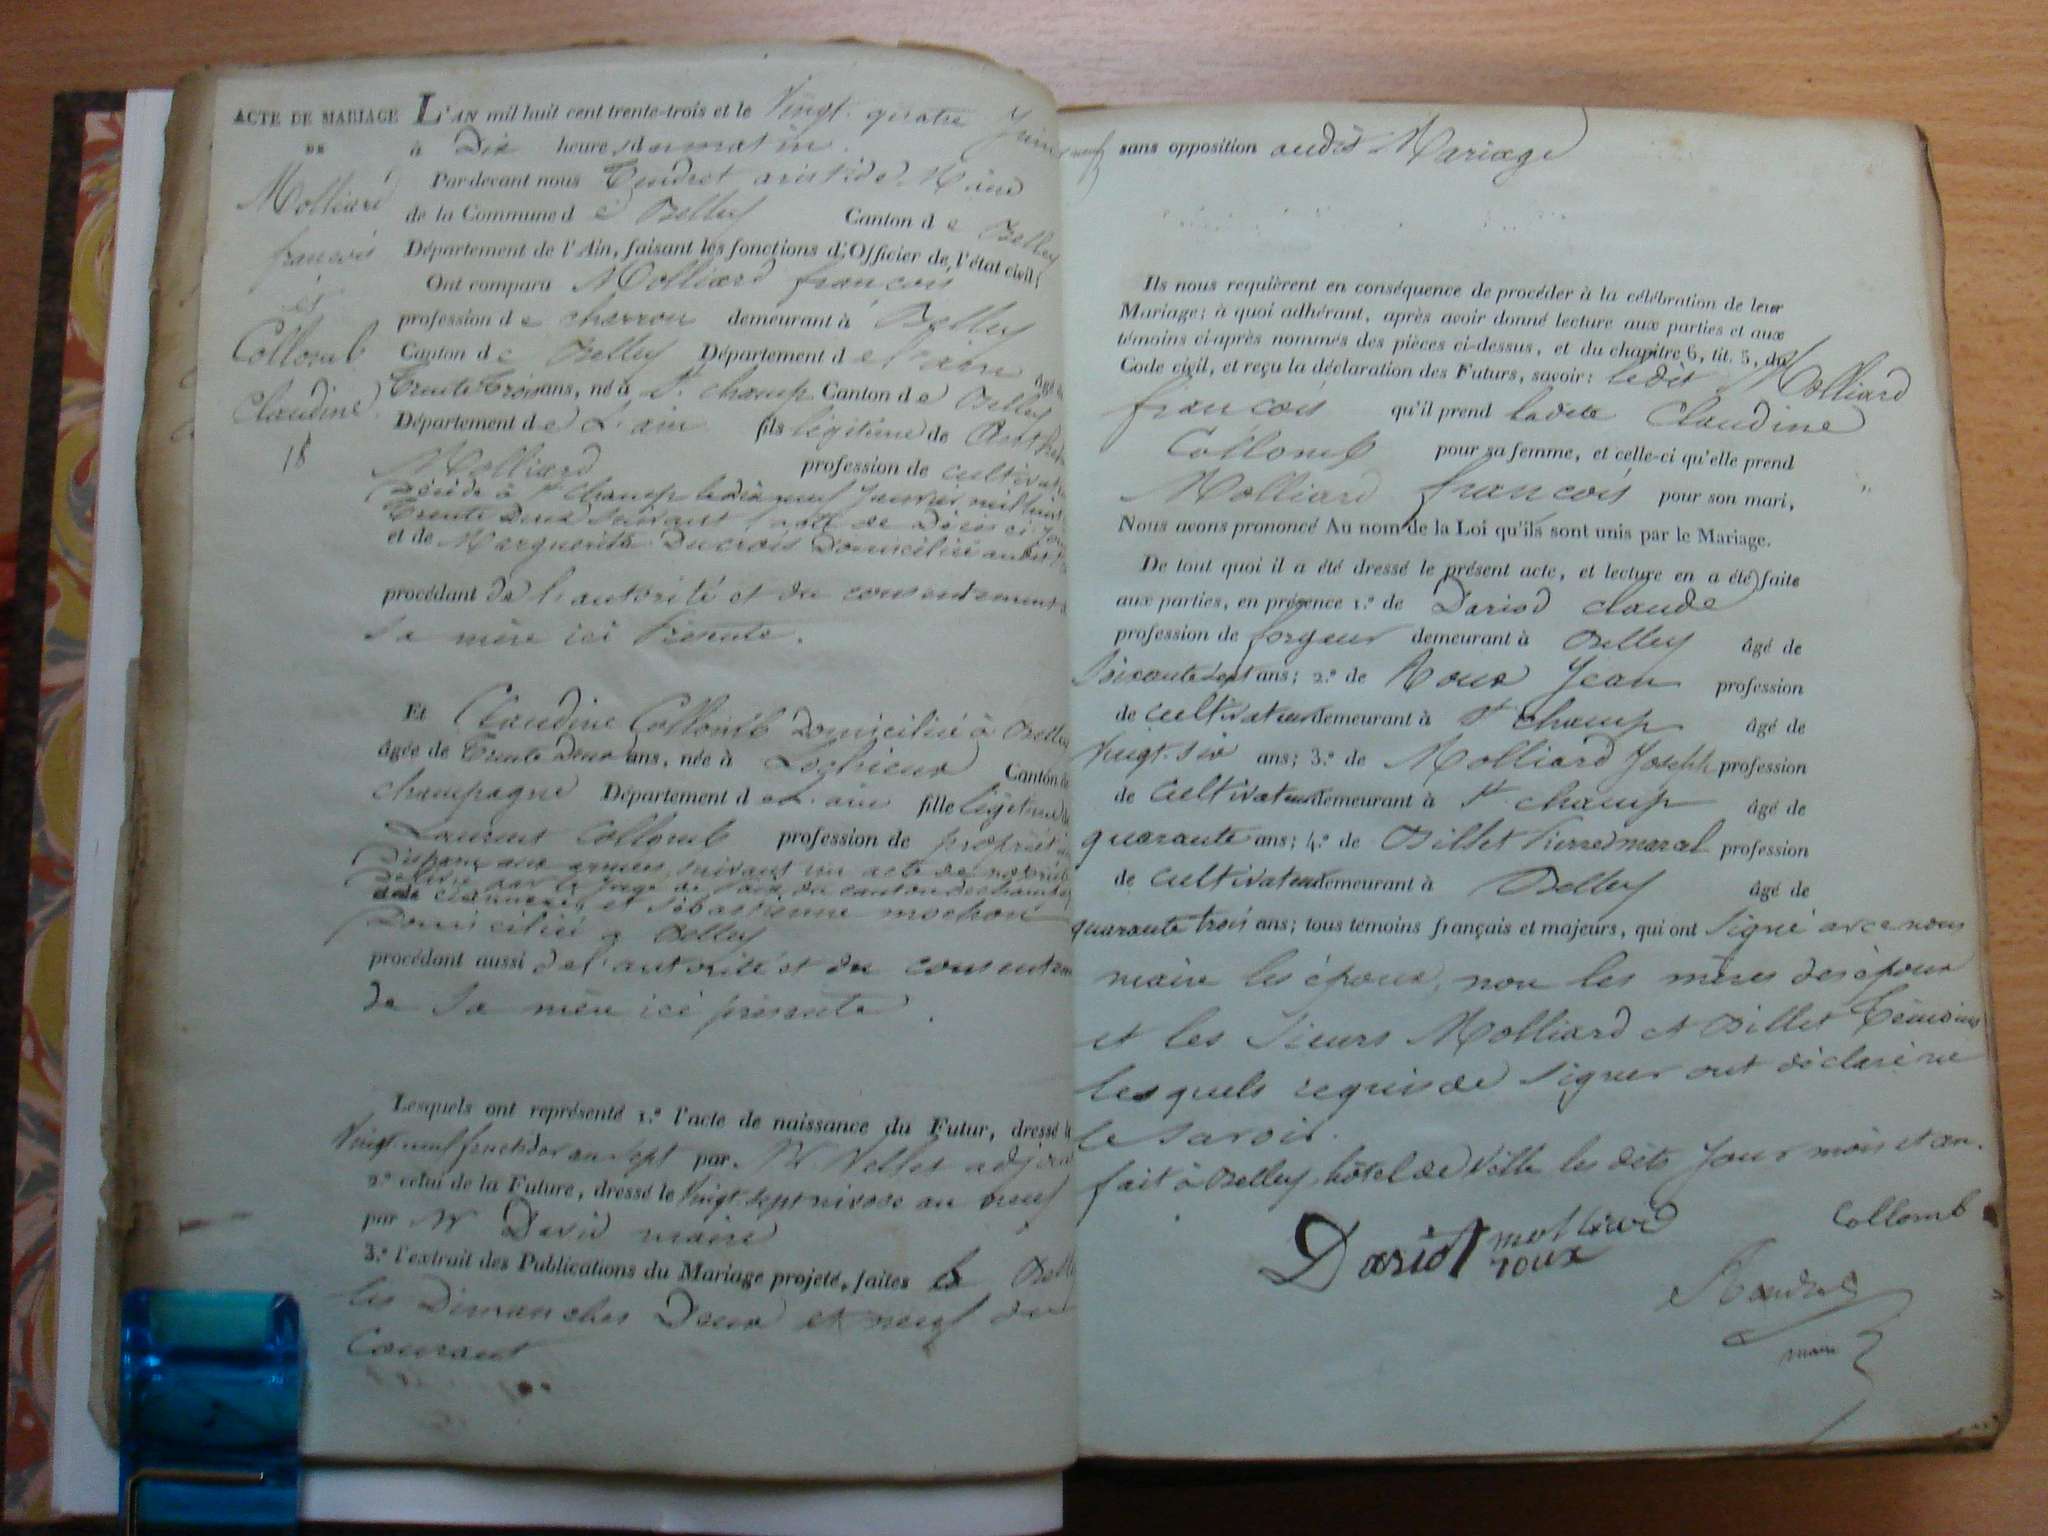 ACTE DE MARIAGE
DE
Molliard
françois
et
Collomb
Claudine
18
L'AN mil huit cent trente-trois et le Vingt quatre Juin
à Dix heures du matin.
Par devant nous Tendret aristide Maire
de la Commune de Belley Canton de Belley
Département de l'Ain, faisant les fonctions d'Officier de l'état civil,
Ont comparu Molliard françois
profession de charron demeurant à Belley
Canton de Belley Département de l'ain âgé de
Trente Trois ans, né à St champ Canton de Belley
Département de L'ain fils légitime de
Molliard profession de cultivat
Décédé à St champ le dix neuf Janvier mil huit
Trente Deux suivant acte de Décès ci Joint
et de Marguerite Ducrois Domiciliée audit
procédant de l'autorité et du consentement de
sa mère ici Présente.
Et Claudine Collomb Domiciliée à Belley
âgée de Trente Deux ans, née à Lochieux Canton de
champagne Département de L'ain fille légitime de
Laurent Collomb profession de propriét
Disparu aux armées, suivant un acte de notoriété
Délivré par le Juge de Paix du canton de champagne
et Sébastienne mochon
Domiciliée à Belley
procédant aussi de l'autorité et du consentem
de sa mère ici présente.
Lesquels ont représenté 1.º l'acte de naissance du Futur, dressé le
Vingt neuf fructidor an sept par Mr Vellet adjoint
2.º celui de la Future, dressé le Vingt sept nivose an neuf
par Mr David maire
3.º l'extrait des Publications du Mariage projeté, faites à Belley
les Dimanches Deux et neuf du
Courant
sans opposition audit Mariage
Ils nous requièrent en conséquence de procéder à la célébration de leur
Mariage; à quoi adhérant, après avoir donné lecture aux parties et aux
témoins ci-après nommés des pièces ci-dessus, et du chapitre 6, tit. 5, du
Code civil, et reçu la déclaration des Futurs, savoir: ledit Molliard
françois qu'il prend ladite Claudine
Collomb pour sa femme, et celle-ci qu'elle prend
Molliard françois pour son mari,
Nous avons prononcé Au nom de la Loi qu'ils sont unis par le Mariage.
De tout quoi il a été dressé le présent acte, et lecture en a été faite
aux parties, en présence 1.º de Dariod claude
profession de forgeur demeurant à Belley âgé de
Soixante sept ans; 2.º de Roux Jean profession
de cultivateur demeurant à St champ âgé de
Vingt-six ans; 3.º de Molliard Joseph profession
de cultivateur demeurant à St champ âgé de
quarante ans; 4.º de Billet Pierre marcel profession
de cultivateur demeurant à Belley âgé de
quarante trois ans; tous témoins français et majeurs, qui ont signé avec nous
maire les époux, non les mères des époux
et les Sieurs Molliard et Billet Témoins
lesquels requis de signer ont déclaré ne
le savoir.
fait à Belley hôtel de Ville les dits Jour mois et an.
Dariot molliard Collomb
roux
Tendret
maire